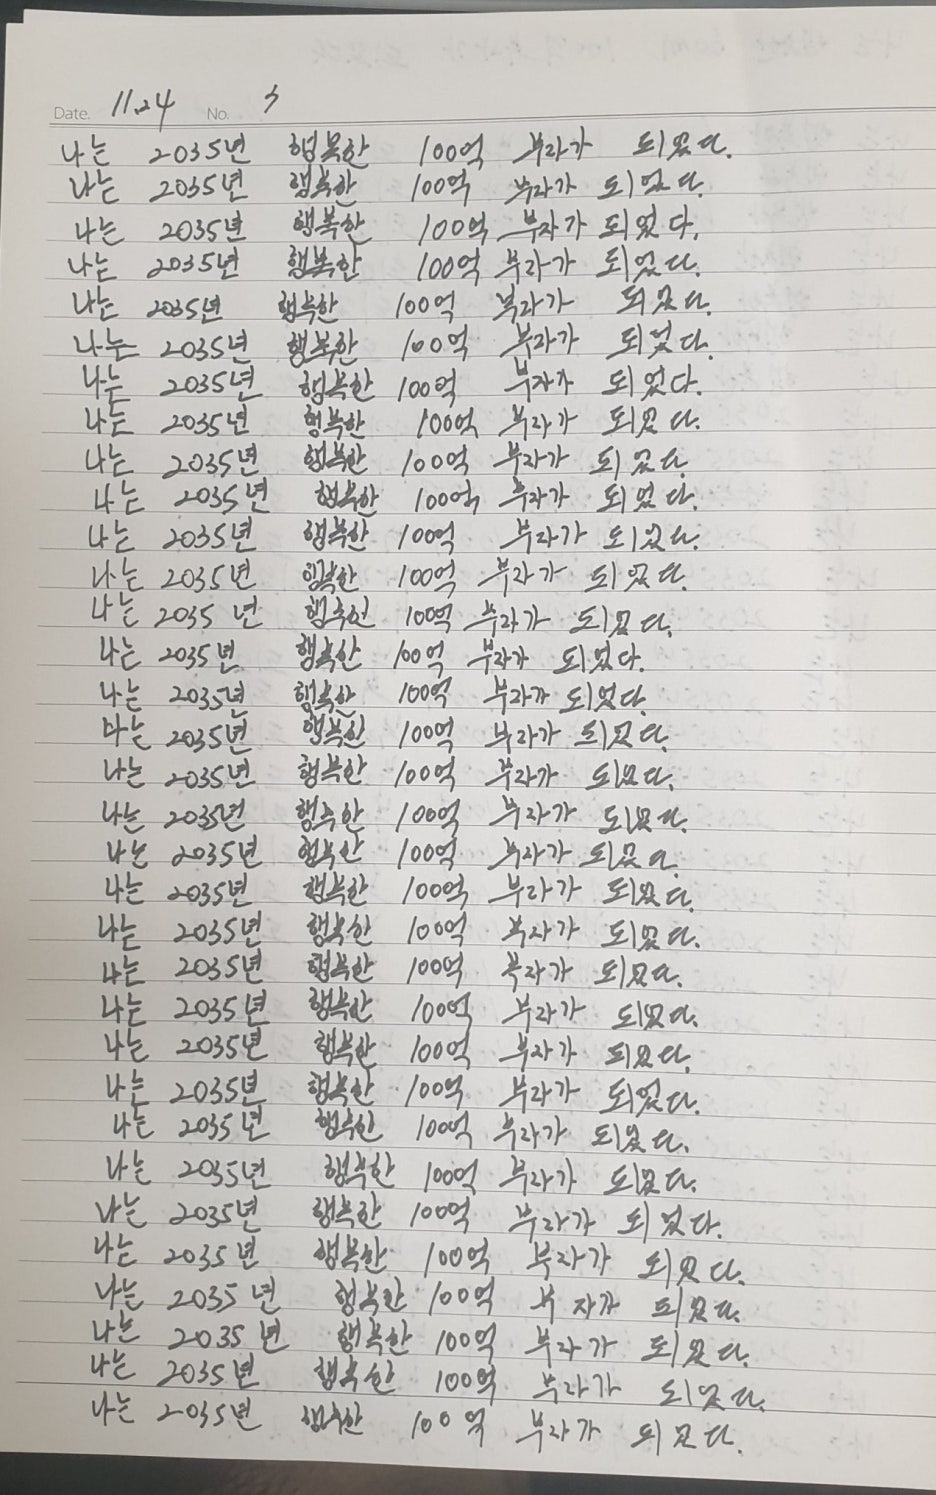 Date. 11.24 No. 3
나는 2035년 행복한 100억 부자가 되었다.
나는 2035년 행복한 100억 부자가 되었다.
나는 2035년 행복한 100억 부자가 되었다.
나는 2035년 행복한 100억 부자가 되었다.
나는 2035년 행복한 100억 부자가 되었다.
나는 2035년 행복한 100억 부자가 되었다.
나는 2035년 행복한 100억 부자가 되었다.
나는 2035년 행복한 100억 부자가 되었다.
나는 2035년 행복한 100억 부자가 되었다.
나는 2035년 행복한 100억 부자가 되었다.
나는 2035년 행복한 100억 부자가 되었다.
나는 2035년 행복한 100억 부자가 되었다.
나는 2035년 행복한 100억 부자가 되었다.
나는 2035년 행복한 100억 부자가 되었다.
나는 2035년 행복한 100억 부자가 되었다.
나는 2035년 행복한 100억 부자가 되었다.
나는 2035년 행복한 100억 부자가 되었다.
나는 2035년 행복한 100억 부자가 되었다.
나는 2035년 행복한 100억 부자가 되었다.
나는 2035년 행복한 100억 부자가 되었다.
나는 2035년 행복한 100억 부자가 되었다.
나는 2035년 행복한 100억 부자가 되었다.
나는 2035년 행복한 100억 부자가 되었다.
나는 2035년 행복한 100억 부자가 되었다.
나는 2035년 행복한 100억 부자가 되었다.
나는 2035년 행복한 100억 부자가 되었다.
나는 2035년 행복한 100억 부자가 되었다.
나는 2035년 행복한 100억 부자가 되었다.
나는 2035년 행복한 100억 부자가 되었다.
나는 2035년 행복한 100억 부자가 되었다.
나는 2035년 행복한 100억 부자가 되었다.
나는 2035년 행복한 100억 부자가 되었다.
나는 2035년 행복한 100억 부자가 되었다.